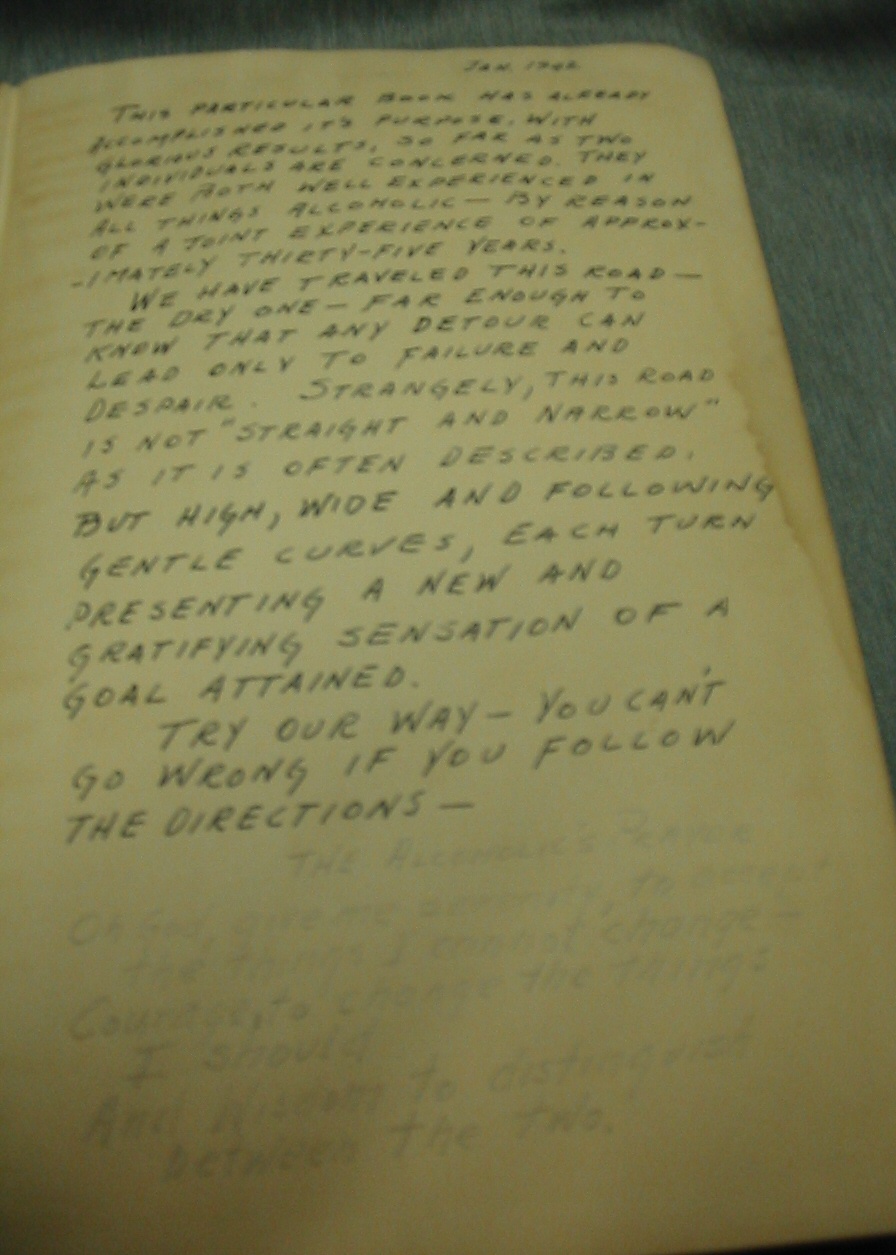 JAN. 1942
THIS PARTICULAR BOOK HAS ALREADY
ACCOMPLISHED IT'S PURPOSE, WITH
GLORIOUS RESULTS, SO FAR AS TWO
INDIVIDUALS ARE CONCERNED. THEY
WERE BOTH WELL EXPERIENCED IN
ALL THINGS ALCOHOLIC — BY REASON
OF A JOINT EXPERIENCE OF APPROX-
-IMATELY THIRTY-FIVE YEARS.
WE HAVE TRAVELED THIS ROAD —
THE DRY ONE — FAR ENOUGH TO
KNOW THAT ANY DETOUR CAN
LEAD ONLY TO FAILURE AND
DESPAIR. STRANGELY, THIS ROAD
IS NOT "STRAIGHT AND NARROW"
AS IT IS OFTEN DESCRIBED,
BUT HIGH, WIDE AND FOLLOWING
GENTLE CURVES, EACH TURN
PRESENTING A NEW AND
GRATIFYING SENSATION OF A
GOAL ATTAINED.
TRY OUR WAY — YOU CAN'T
GO WRONG IF YOU FOLLOW
THE DIRECTIONS —
THE ALCOHOLIC'S PRAYER
Oh God, give me serenity, to accept
the things I cannot change —
Courage, to change the things
I should
And Wisdom to distinguish
between the two.